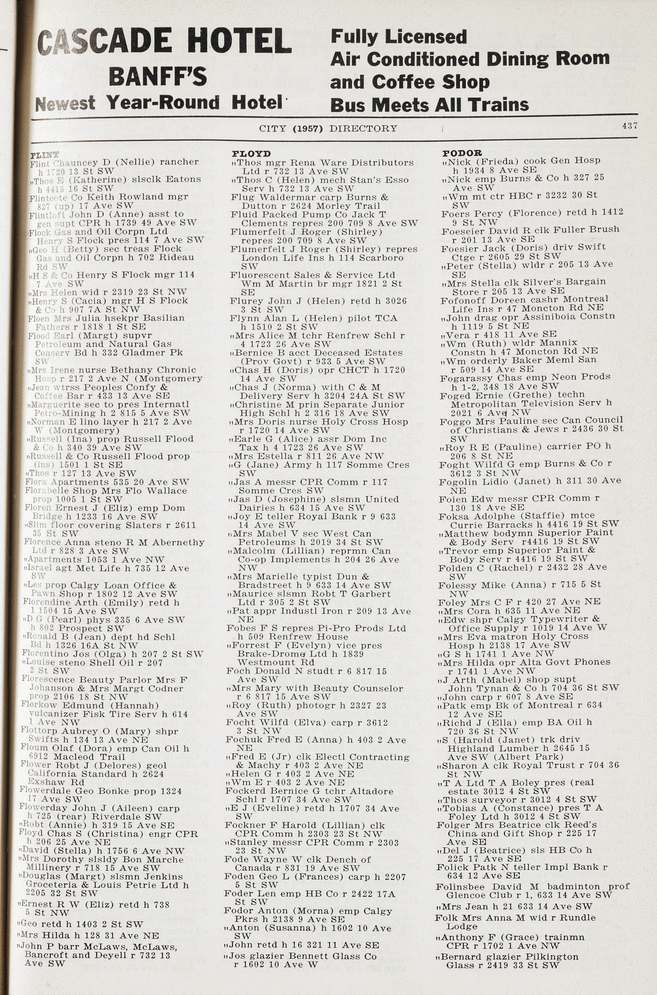 CASCADE HOTEL
BANFF'S
Newest Year-Round Hotel
Fully Licensed
Air Conditioned Dining Room
and Coffee Shop
Bus Meets All Trains
CITY (1957) DIRECTORY
437
FLINT
Flint Chauncey D (Nellie) rancher
h 1720 13 St SW
„Thos E (Katherine) slsclk Eatons
h 4415 16 St SW
Flintcote Co Keith Rowland mgr
827 (up) 17 Ave SW
Flintloft John D (Anne) asst to
gen supt CPR h 1739 49 Ave SW
Flock Gas and Oil Corpn Ltd
Henry S Flock pres 114 7 Ave SW
„Geo H (Betty) sec treas Flock
Gas and Oil Corpn h 702 Rideau
Rd SW
„H S & Co Henry S Flock mgr 114
7 Ave SW
„Mrs Helen wid r 2319 23 St NW
„Henry S (Cacia) mgr H S Flock
& Co h 907 7A St NW
Floen Mrs Julia hsekpr Basilian
Fathers r 1818 1 St SE
Flood Earl (Margt) supvr
Petroleum and Natural Gas
Conserv Bd h 332 Gladmer Pk
SW
„Mrs Irene nurse Bethany Chronic
Hosp r 217 2 Ave N (Montgomery
„Jean wtrss Peoples Confy &
Coffee Bar r 433 13 Ave SW
„Marguerite sec to pres Internatl
Petro-Mining h 2 815 5 Ave SW
„Norman E lino layer h 217 2 Ave
W (Montgomery)
„Russell (Ina) prop Russell Flood
& Co h 340 39 Ave SW
„Russell & Co Russell Flood prop
(ins) 1501 1 St SE
„Thos r 127 13 Ave SW
Flora Apartments 535 20 Ave SW
Florabelle Shop Mrs Flo Wallace
prop 1005 1 St SW
Floren Ernest J (Eliz) emp Dom
Bridge h 1233 16 Ave SW
„Slim floor covering Slaters r 2611
35 St SW
Florence Anna steno R M Abernethy
Ltd r 828 3 Ave SW
„Apartments 1053 1 Ave NW
„Israel agt Met Life h 735 12 Ave
SW
„Les prop Calgy Loan Office &
Pawn Shop r 1802 12 Ave SW
Florendine Arth (Emily) retd h
1 1504 15 Ave SW
„D G (Pearl) phys 335 6 Ave SW
h 802 Prospect SW
„Ronald B (Jean) dept hd Schl
Bd h 1326 16A St NW
Florentino Jos (Olga) h 207 2 St SW
„Louise steno Shell Oil r 207
2 St SW
Florescence Beauty Parlor Mrs F
Johanson & Mrs Margt Codner
prop 2106 18 St NW
Florkow Edmund (Hannah)
vulcanizer Fisk Tire Serv h 614
1 Ave NW
Flottorp Aubrey O (Mary) shpr
Swifts h 134 13 Ave NE
Floum Olaf (Dora) emp Can Oil h
6912 Macleod Trail
Flower Robt J (Delores) geol
California Standard h 2624
Exshaw Rd
Flowerdale Geo Bonke prop 1324
17 Ave SW
Flowerday John J (Aileen) carp
h 725 (rear) Riverdale SW
„Robt (Annie) h 319 15 Ave SE
Floyd Chas S (Christina) engr CPR
h 206 25 Ave NE
„David (Stella) h 1756 6 Ave NW
„Mrs Dorothy slsldy Bon Marche
Millinery r 718 15 Ave SW
„Douglas (Margt) slsmn Jenkins
Groceteria & Louis Petrie Ltd h
2205 32 St SW
„Ernest R W (Eliz) retd h 738
5 St NW
„Geo retd h 1403 2 St SW
„Mrs Hilda h 128 31 Ave NE
„John P barr McLaws, McLaws,
Bancroft and Deyell r 732 13
Ave SW
FLOYD
„Thos mgr Rena Ware Distributors
Ltd r 732 13 Ave SW
„Thos C (Helen) mech Stan's Esso
Serv h 732 13 Ave SW
Flug Waldemar carp Burns &
Dutton r 2624 Morley Trail
Fluid Packed Pump Co Jack T
Clements repres 200 709 8 Ave SW
Flumerfelt J Roger (Shirley)
repres 200 709 8 Ave SW
Flumerfelt J Roger (Shirley) repres
London Life Ins h 114 Scarboro
SW
Fluorescent Sales & Service Ltd
Wm M Martin br mgr 1821 2 St
SE
Flurey John J (Helen) retd h 3026
3 St SW
Flynn Alan L (Helen) pilot TCA
h 1510 2 St SW
„Mrs Alice M tchr Renfrew Schl r
4 1723 26 Ave SW
„Bernice B acct Deceased Estates
(Prov Govt) r 933 5 Ave SW
„Chas H (Doris) opr CHCT h 1720
14 Ave SW
„Chas J (Norma) with C & M
Delivery Serv h 3204 24A St SW
„Christine M prin Separate Junior
High Schl h 2 316 18 Ave SW
„Mrs Doris nurse Holy Cross Hosp
r 1720 14 Ave SW
„Earle G (Alice) assr Dom Inc
Tax h 4 1723 26 Ave SW
„Mrs Estella r 811 26 Ave NW
„G (Jane) Army h 117 Somme Cres
SW
„Jas A messr CPR Comm r 117
Somme Cres SW
„Jas D (Josephine) slsmn United
Dairies h 634 15 Ave SW
„Joy E teller Royal Bank r 9 633
14 Ave SW
„Mrs Mabel V sec West Can
Petroleums h 2019 34 St SW
„Malcolm (Lillian) reprmn Can
Co-op Implements h 204 26 Ave
NW
„Mrs Marielle typist Dun &
Bradstreet h 9 633 14 Ave SW
„Maurice slsmn Robt T Garbert
Ltd r 305 2 St SW
„Pat appr Industl Iron r 209 13 Ave
NE
Fobes F S repres Pi-Pro Prods Ltd
h 509 Renfrew House
„Forrest F (Evelyn) vice pres
Brake-Drome Ltd h 1839
Westmount Rd
Foch Donald N studt r 6 817 15
Ave SW
„Mrs Mary with Beauty Counselor
r 6 817 15 Ave SW
„Roy (Ruth) photogr h 2327 23
Ave SW
Focht Wilfd (Elva) carp r 3612
3 St NW
Fochuk Fred E (Anna) h 403 2 Ave
NE
„Fred E (Jr) clk Electl Contracting
& Machy r 403 2 Ave NE
„Helen G r 403 2 Ave NE
„Wm E r 403 2 Ave NE
Fockerd Bernice G tchr Altadore
Schl r 1707 34 Ave SW
„E J (Eveline) retd h 1707 34 Ave
SW
Fockner F Harold (Lillian) clk
CPR Comm h 2303 23 St NW
„Stanley messr CPR Comm r 2303
23 St NW
Fode Wayne W clk Dench of
Canada r 831 19 Ave SW
Foden Geo L (Frances) carp h 2207
5 St SW
Foder Len emp HB Co r 2422 17A
St SW
Fodor Anton (Morna) emp Calgy
Pkrs h 2138 9 Ave SE
„Anton (Susanna) h 1602 10 Ave
SW
„John retd h 16 321 11 Ave SE
„Jos glazier Bennett Glass Co
r 1602 10 Ave W
FODOR
„Nick (Frieda) cook Gen Hosp
h 1934 8 Ave SE
„Nick emp Burns & Co h 327 25
Ave SW
„Wm mt ctr HBC r 3232 30 St
SW
Foers Percy (Florence) retd h 1412
9 St NW
Foeseier David R clk Fuller Brush
r 201 13 Ave SW
Foesier Jack (Doris) driv Swift
Ctge r 2605 29 St SW
„Peter (Stella) wldr r 205 13 Ave
SE
„Mrs Stella clk Silver's Bargain
Store r 205 13 Ave SE
Fofonoff Doreen cashr Montreal
Life Ins r 47 Moncton Rd NE
„John drag opr Assiniboia Constn
h 1119 5 St NE
„Vera r 418 11 Ave SE
„Wm (Ruth) wldr Mannix
Constn h 47 Moncton Rd NE
„Wm orderly Baker Meml San
r 509 14 Ave SE
Fogarassy Chas emp Neon Prods
h 1-2, 348 18 Ave SW
Foged Ernie (Grethe) techn
Metropolitan Television Serv h
2021 6 Ave NW
Foggo Mrs Pauline sec Can Council
of Christians & Jews r 2436 30 St
SW
„Roy R E (Pauline) carrier PO h
206 8 St NE
Foght Wilfd G emp Burns & Co r
3612 3 St NW
Fogolin Lidio (Janet) h 311 30 Ave
NE
Foien Edw messr CPR Comm r
130 18 Ave SE
Foksa Adolphe (Staffie) mtce
Currie Barracks h 4416 19 St SW
„Matthew bodymn Superior Paint
& Body Serv r4416 19 St SW
„Trevor emp Superior Paint &
Body Serv r 4416 19 St SW
Folden C (Rachel) r 2432 28 Ave
SW
Folessy Mike (Anna) r 715 5 St
NW
Foley Mrs C F r 420 27 Ave NE
„Mrs Cora h 635 11 Ave NE
„Edw shpr Calgy Typewriter &
Office Supply r 1019 14 Ave W
„Mrs Eva matron Holy Cross
Hosp h 2138 17 Ave SW
„G S h 1741 1 Ave NW
„Mrs Hilda opr Alta Govt Phones
r 1741 1 Ave NW
„J Arth (Mabel) shop supt
John Tynan & Co h 704 36 St SW
„John carp r 607 8 Ave SE
„Patk emp Bk of Montreal r 634
12 Ave SE
„Richd J (Ella) emp BA Oil h
720 36 St NW
„S (Harold (Janet) trk driv
Highland Lumber h 2645 15
Ave SW (Albert Park)
„Sharon A clk Royal Trust r 704 36
St NW
„T A Ltd T A Boley pres (real
estate 3012 4 St SW)
„Thos surveyor r 3012 4 St SW
„Tobias A (Constance) pres T A
Foley Ltd h 3012 4 St SW
Folger Mrs Beatrice clk Reed's
China and Gift Shop r 225 17
Ave SW
„Del J (Beatrice) sls HB Co h
225 17 Ave SW
Folick Patk N teller Impl Bank r
634 12 Ave SE
Folinsbee David M badminton prof
Glencoe Club r 1, 633 14 Ave SW
„Mrs Jean h 21 633 14 Ave SW
Folk Mrs Anna M wid r Rundle
Lodge
„Anthony F (Grace) trainmn
CPR r 1702 1 Ave NW
„Bernard glazier Pilkington
Glass r 2419 33 St SW